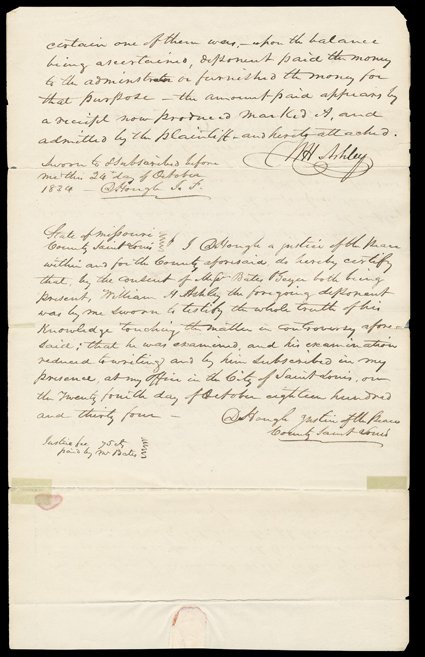 certain one of them was, - upon the balance
being ascertained, deponent paid the money
to the adminstrator or furnished the money for
that purpose - the amount paid appears by
a receipt now produced marked A, and
admitted by the plaintiff - and hereto attached.
Sworn to & subscribed before
me this 24th day of October
1834 - D Hough J. P.
WH Ashley
State of Missouri
County Saint Louis
I D Hough a justice of the Peace
within and for the County aforesaid do hereby certify
that, by the consent of Messrs Bates & Geyer both being
present, William H Ashley the foregoing deponent
was by me sworn to testify the whole truth of his
Knowledge touching the matter in controversy afore=
said; that he was examined, and his examination
reduced to writing, and by him subscribed in my
presence, at my office in the City of Saint Louis, on
the Twenty fourth day of October eighteen hundred
and thirty four -
D Hough Justice of the Peace
County Saint Louis
Justice fee 75 cts
paid by Mr Bates